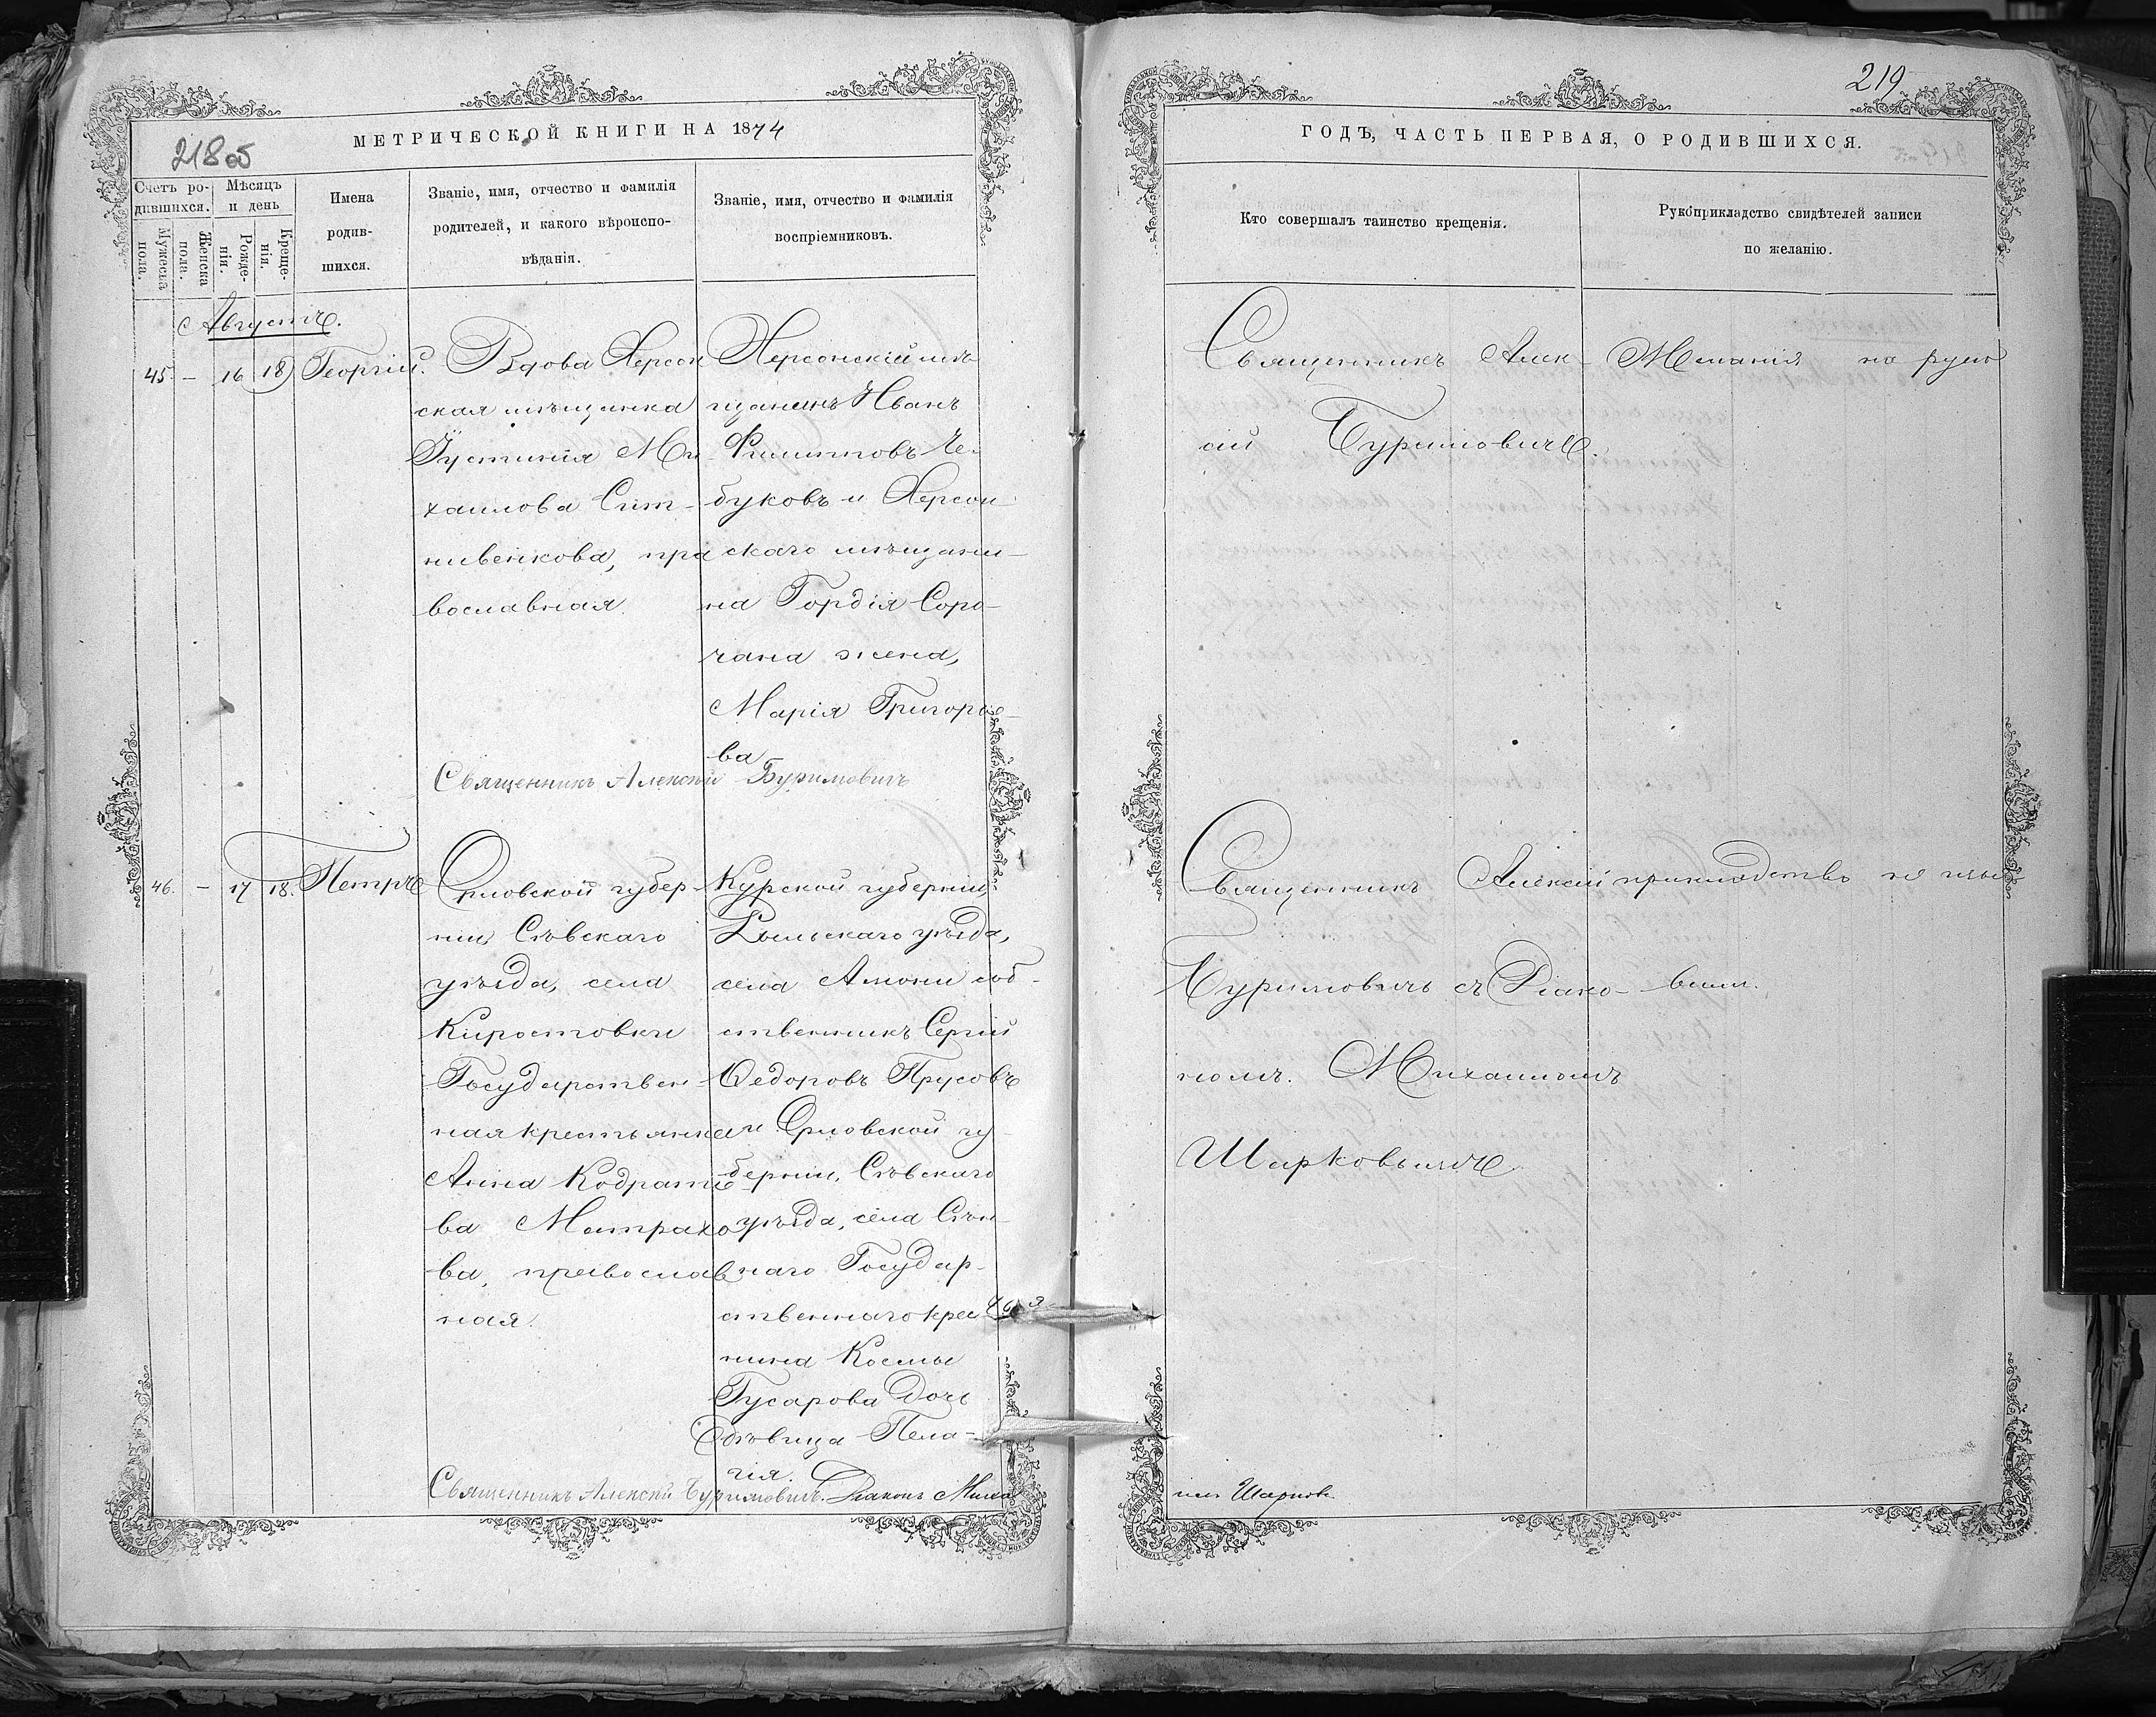 МЕТРИЧЕСКОЙ КНИГИ НА 1874
218 об
Счетъ ро-
дившихся.
Мѣсяцъ
и день
Имена
родив-
шихся.
Званіе, имя, отчество и фамилія
родителей, и какого вѣроиспо-
вѣданія.
Званіе, имя, отчество и фамилія
воспріемниковъ.
Мужеска
пола.
Женска
пола.
Рожде-
нія.
Креще-
нія.
Августъ.
45 – 16 18 Георгій.
Вдова Херсон
ская мѣщанка
Іустинія Ми-
хаилова Сит-
нивенкова, пра
вославная.
Херсонскій мѣ-
щанинъ Иванъ
Филипповъ Че-
буковъ и Херсон-
скаго мѣщани-
на Гордія Соро-
чана жена,
Марія Григорье-
ва
Священникъ Алексій Буримовичъ
46. – 17 18. Петръ
Орловской губер-
ніи, Сѣвскаго
уѣзда, села
Государствен-
ная крестьянка
Анна Кодратіе
ва Матрахо
ва, православ
ная.
Курской губерніи,
Рыльскаго уѣзда,
села Амони соб-
ственникъ Сергій
Ѳедоровъ Прусовъ
и Орловской гу-
берніи, Сѣвскаго
уѣзда, села
наго Государ-
ственнаго крес
нина Космы
Гусарова дочь
дѣвица Пела-
гія.
Священникъ Алексій Буримовичъ. Діаконъ Миха
219
ГОДЪ, ЧАСТЬ ПЕРВАЯ, О РОДИВШИХСЯ.
Кто совершалъ таинство крещенія.
Рукоприкладство свидѣтелей записи
по желанію.
Священникъ Алек-
сій Буримовичъ.
Желанія на руко
Священникъ Алексій
Буримовичъ съ Діако-
номъ. Михаиломъ
Шарковымъ
прикладство не изъя
вили.
илъ Шарковъ